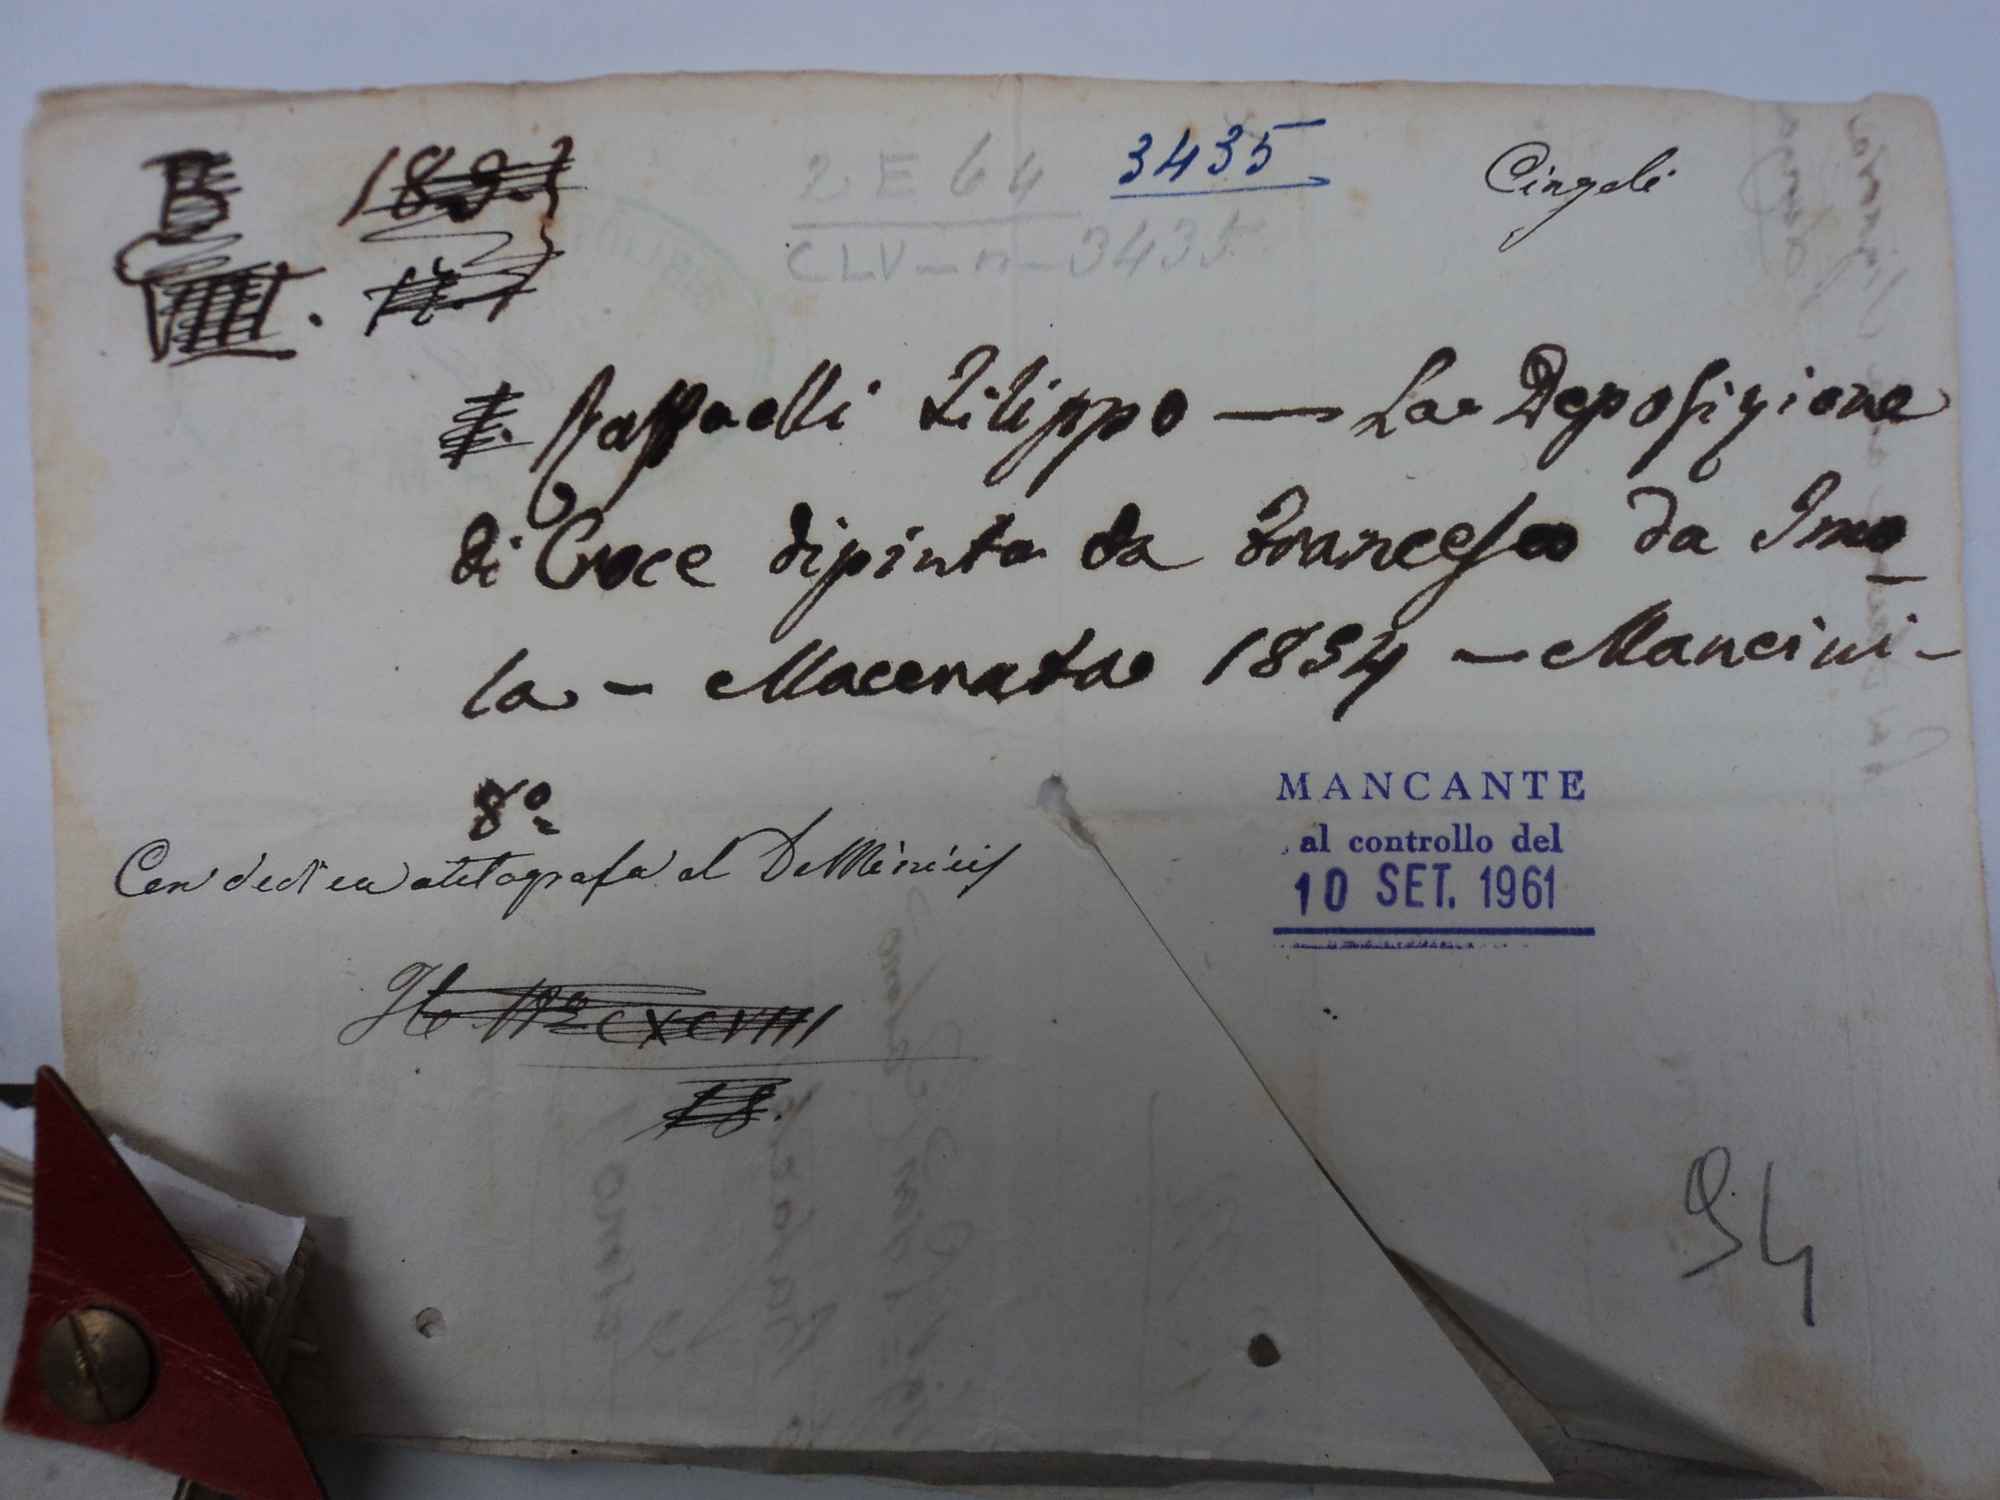 2 E 64
3435
Cingoli
CLV-n-3435
Raffaelli Filippo — La Deposizione
di Croce dipinta da Francesco da Imo-
la - Macerata 1854 - Mancini -
8º
Con dedica autografa al De Minicis
MANCANTE
al controllo del
10 SET. 1961
CXCVIII
94